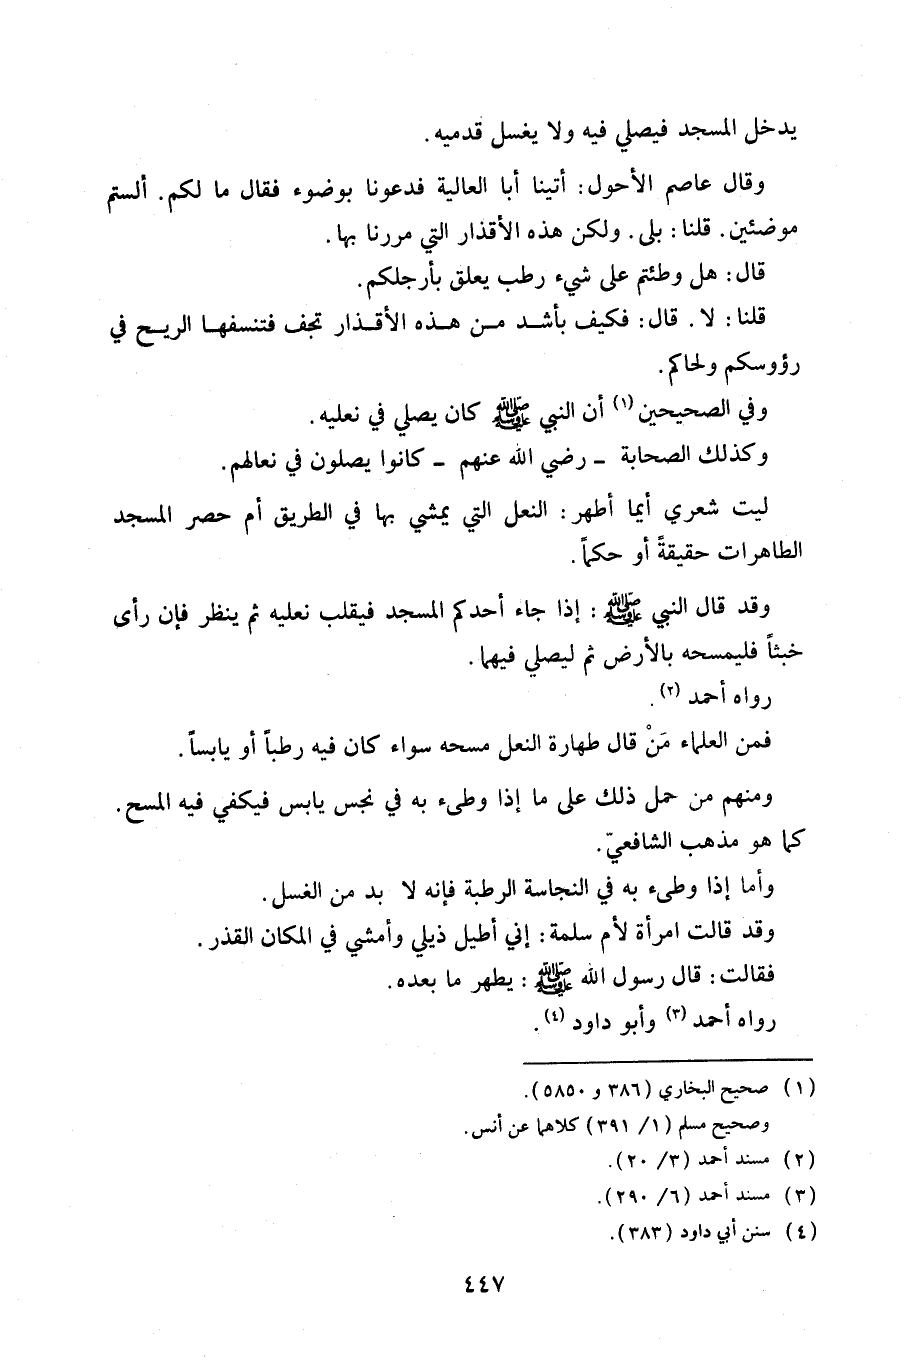 يدخل المسجد فيصلي فيه ولا يغسل قدميه.
وقال عاصم الأحول: أتينا أبا العالية فدعونا بوضوء فقال ما لكم. ألستم
موضئين. قلنا: بلى. ولكن هذه الأقذار التي مررنا بها.
قال: هل وطئتم على شيء رطب يعلق بأرجلكم.
قلنا: لا. قال: فكيف بأشد من هذه الأقذار تجف فتنسفها الريح في
رؤوسكم ولحاكم.
وفي الصحيحين (١) أن النبي ﷺ كان يصلي في نعليه.
وكذلك الصحابة - رضي الله عنهم - كانوا يصلون في نعالهم.
ليت شعري أيما أطهر: النعل التي يمشي بها في الطريق أم حصر المسجد
الطاهرات حقيقةً أو حكماً.
وقد قال النبي ﷺ: إذا جاء أحدكم المسجد فيقلب نعليه ثم ينظر فإن رأى
خبثاً فليمسحه بالأرض ثم ليصلي فيهما.
رواه أحمد (٢).
فمن العلماء مَنْ قال طهارة النعل مسحه سواء كان فيه رطباً أو يابساً.
ومنهم من حمل ذلك على ما إذا وطىء به في نجس يابس فيكفي فيه المسح.
كما هو مذهب الشافعيّ.
وأما إذا وطىء به في النجاسة الرطبة فإنه لا بد من الغسل.
وقد قالت امرأة لأم سلمة: إني أطيل ذيلي وأمشي في المكان القذر.
فقالت: قال رسول الله ﷺ: يطهر ما بعده.
رواه أحمد (٣) وأبو داود (٤).
(١) صحيح البخاري (٣٨٦ و ٥٨٥٠).
وصحيح مسلم (١/ ٣٩١) كلاهما عن أنس.
(٢) مسند أحمد (٣/ ٢٠).
(٣) مسند أحمد (٦/ ٢٩٠).
(٤) سنن أبي داود (٣٨٣).
٤٤٧